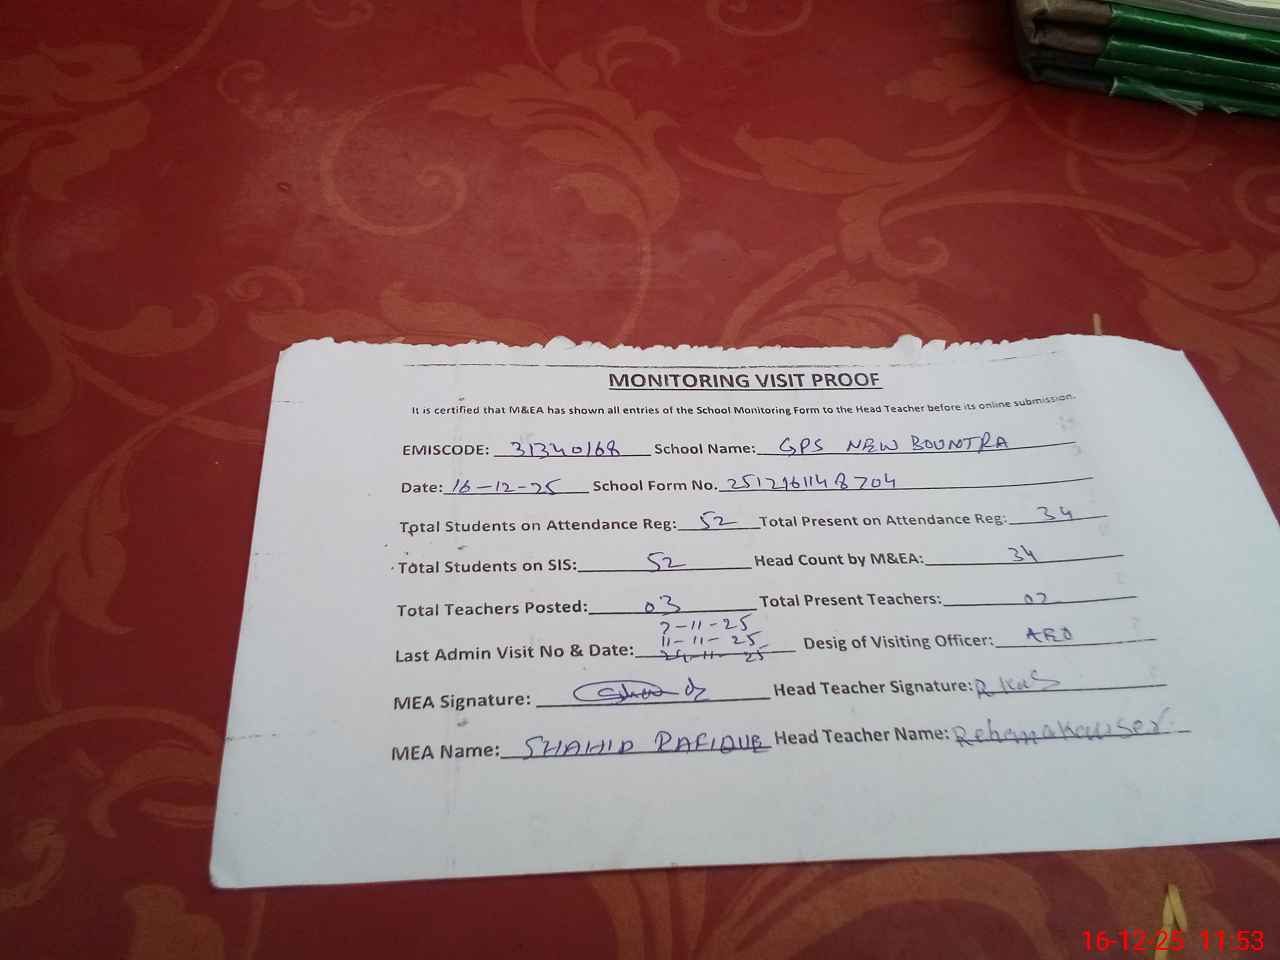 MONITORING VISIT PROOF
It is certified that M&EA has shown all entries of the School Monitoring Form to the Head Teacher before its online submission.
EMISCODE: 31340168 School Name: GPS NEW BOUNTRA
Date: 16-12-25 School Form No. 2512161148704
Total Students on Attendance Reg: 52 Total Present on Attendance Reg: 34
Total Students on SIS: 52 Head Count by M&EA: 34
Total Teachers Posted: 03 Total Present Teachers: 02
7-11-25
11-11-25
Last Admin Visit No & Date: 24-11-25 Desig of Visiting Officer: AEO
MEA Signature: Head Teacher Signature: R Kas
MEA Name: SHAHID RAFIQUE Head Teacher Name: Rehanakauser
16-12-25 11:53